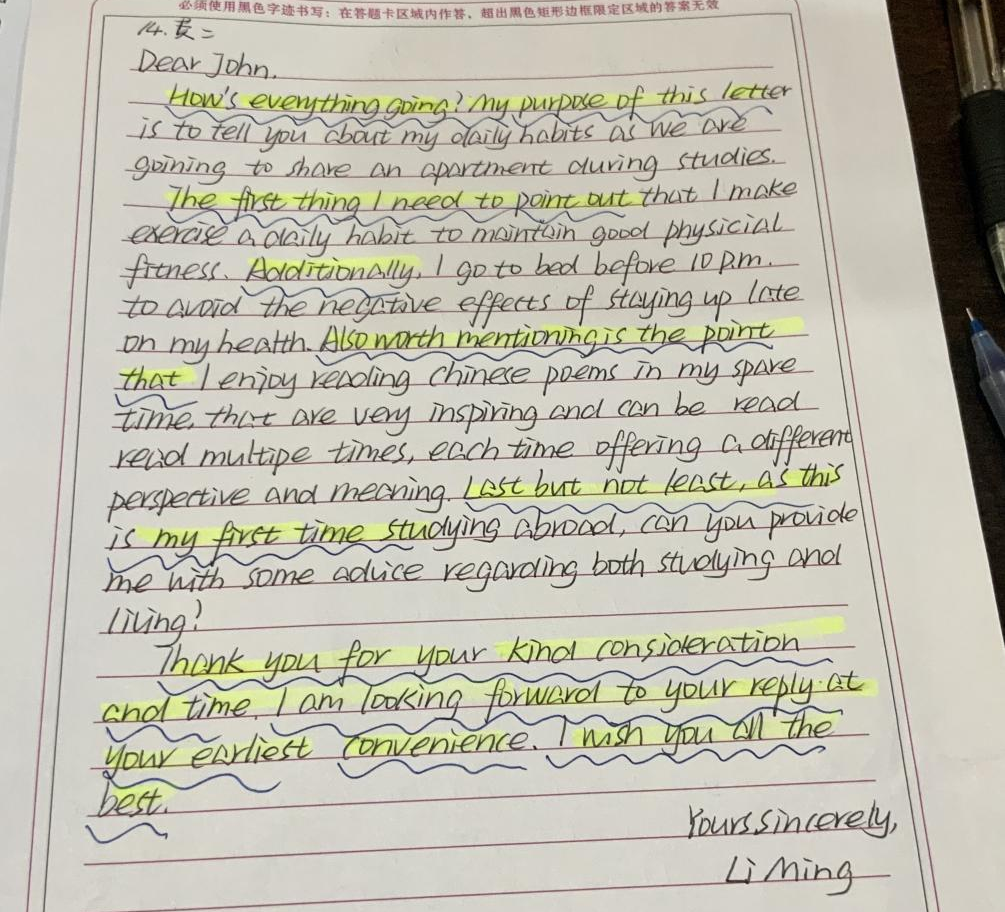 必须使用黑色字迹书写；在答题卡区域内作答，超出黑色矩形边框限定区域的答案无效
14. 英二
Dear John,
How's everything going? My purpose of this letter
is to tell you about my daily habits as we are
goining to share an apartment during studies.
The first thing I need to point out that I make
exercise a daily habit to maintain good physicial
fitness. Additionally, I go to bed before 10 p.m.
to avoid the negative effects of staying up late
on my health. Also worth mentioning is the point
that I enjoy reading Chinese poems in my spare
time, that are very inspiring and can be read
read multipe times, each time offering a different
perspective and meaning. Last but not least, as this
is my first time studying abroad, can you provide
me with some advice regarding both studying and
living?
Thank you for your kind consideration
and time. I am looking forward to your reply at
your earliest convenience. I wish you all the
best.
Yours sincerely,
Li Ming